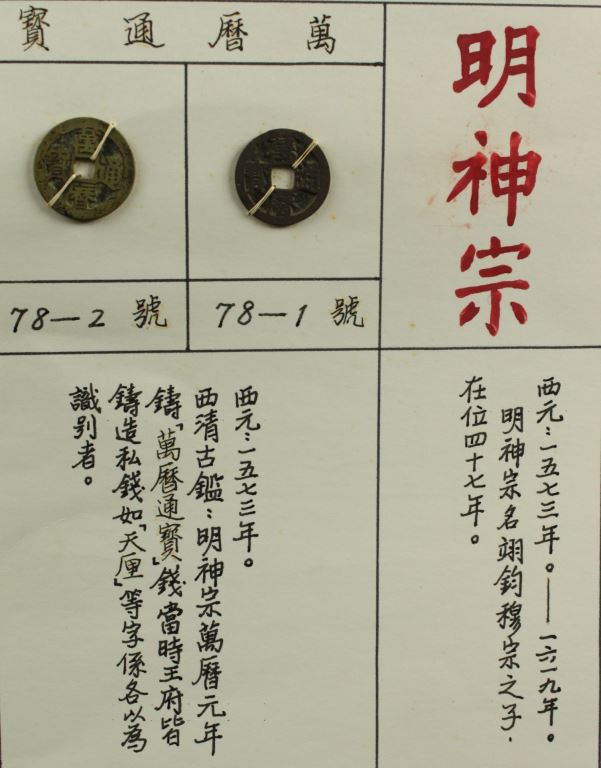 萬曆通寶
明神宗
78—1 號
78—2 號
萬曆通寶
萬曆通寶
西元：一五七三年。——一六一九年。
明神宗名翊鈞穆宗之子，
在位四十七年。
西元：一五七三年。
西清古鑑：明神宗萬曆元年
鑄「萬曆通寶」錢當時王府皆
鑄造私錢如「天厘」等字係各以為
識别者。